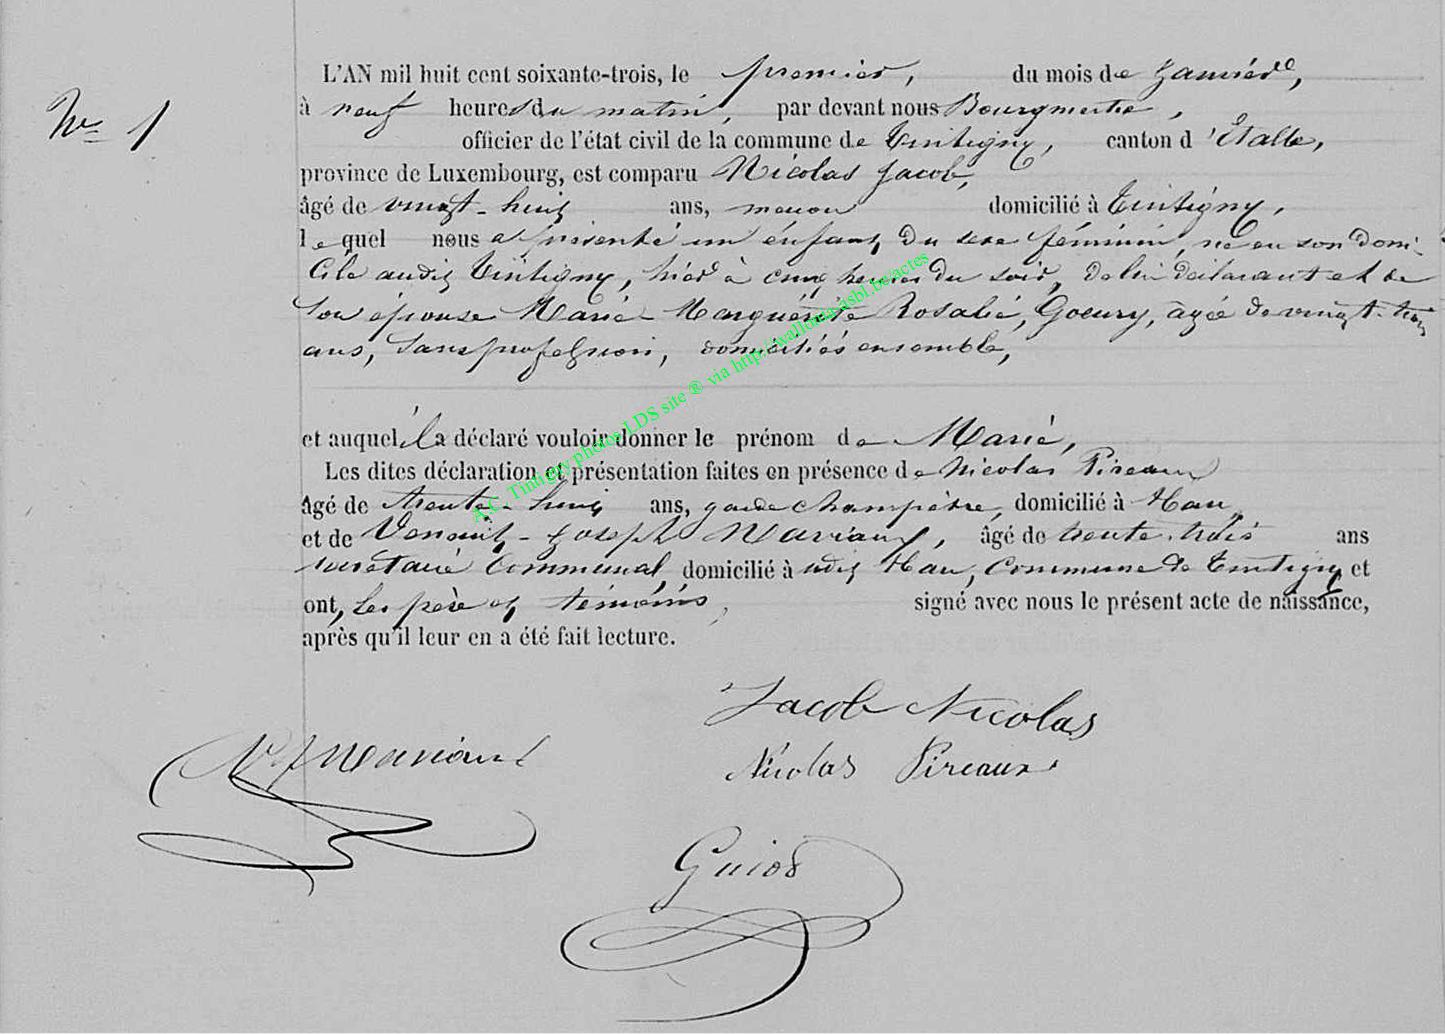 L'AN mil huit cent soixante-trois, le premier, du mois de Janvier,
N° 1
à neuf heures du matin, par devant nous Bourgmestre,
officier de l'état civil de la commune de Tintigny, canton d'Etalle,
province de Luxembourg, est comparu Nicolas Jacob,
âgé de vingt-huit ans, maçon domicilié à Tintigny,
lequel nous a présenté un enfant du sexe féminin, né en son domi-
cile audit Tintigny, hier à cinq heures du soir, de lui déclarant et de
son épouse Marie Marguérite Rosalie, Goeury, agée de vingt-trois
ans, sans profession, domiciliés ensemble,
et auquel il a déclaré vouloir donner le prénom de Marie,
Les dites déclaration et présentation faites en présence de Nicolas Pireaux
âgé de trente-huit ans, garde champêtre, domicilié à Han,
et de Joseph âgé de trente-trois ans
secrétaire communal, domicilié à udit Han, commune de Tintigny et
ont, les père et témoins, signé avec nous le présent acte de naissance,
après qu'il leur en a été fait lecture.
Jacob Nicolas
Nicolas Pireaux
Guiot
A.C. Tintigny photos LDS site ® via http://wallonia-asbl.be/actes